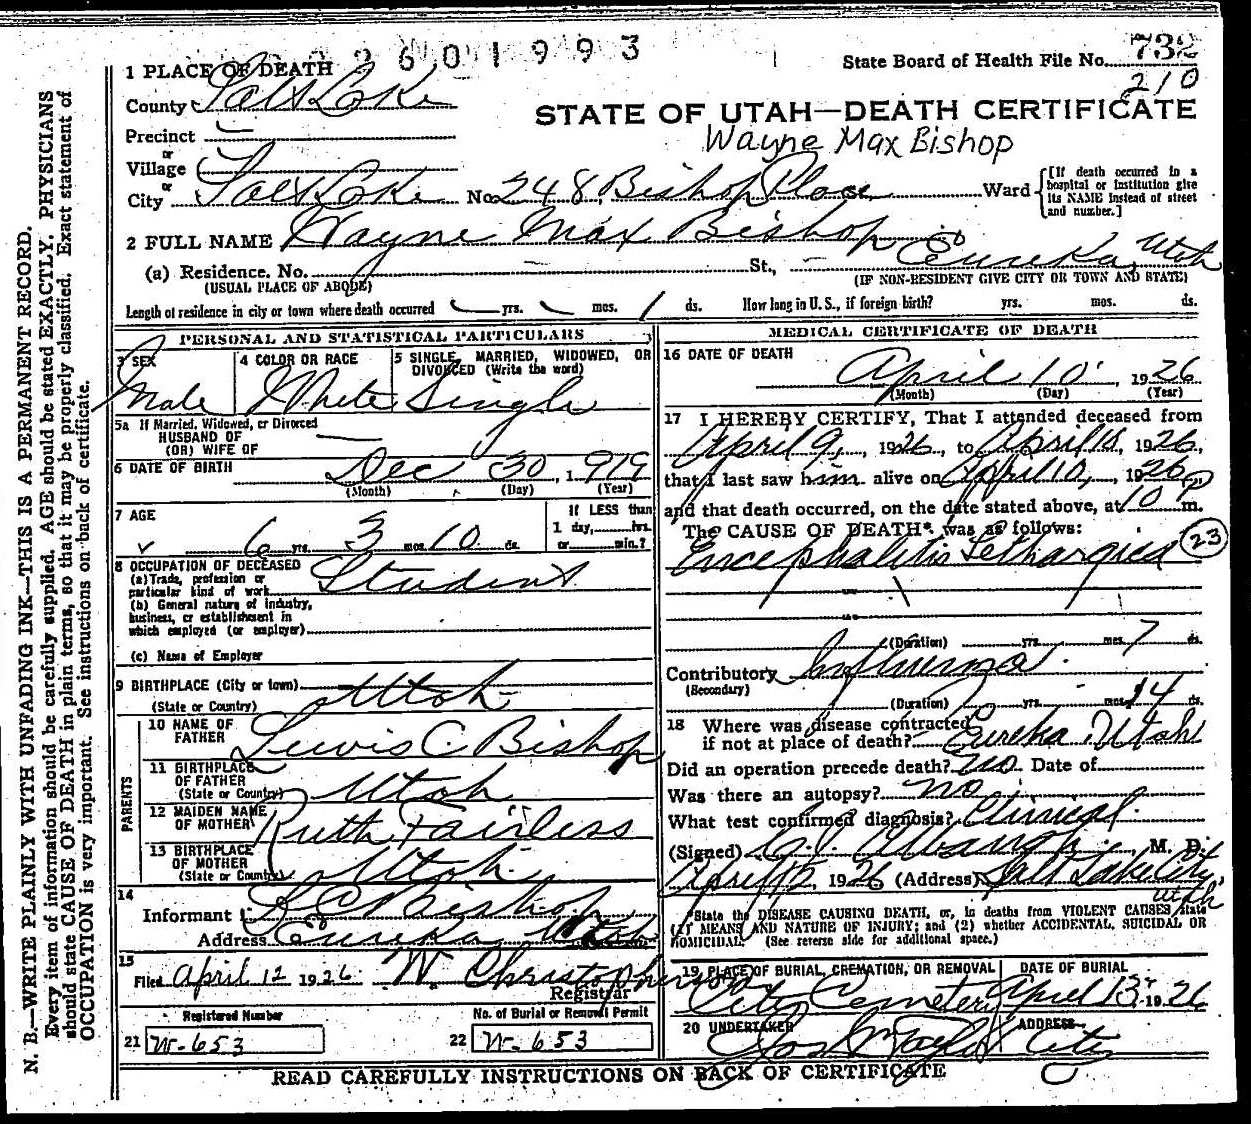 2601993
State Board of Health File No. 732
210
1 PLACE OF DEATH
County Salt Lake
STATE OF UTAH—DEATH CERTIFICATE
Wayne Max Bishop
Precinct
or
Village
or
City Salt Lake No. 248 Bishop Place Ward [If death occurred in a hospital or institution give its NAME instead of street and number.]
2 FULL NAME Wayne Max Bishop
(a) Residence, No. St., Eureka, Utah
(USUAL PLACE OF ABODE) (IF NON-RESIDENT GIVE CITY OR TOWN AND STATE)
Length of residence in city or town where death occurred — yrs. — mos. 1 ds. How long in U. S., if foreign birth? yrs. mos. ds.
PERSONAL AND STATISTICAL PARTICULARS
3 SEX
Male
4 COLOR OR RACE
White
5 SINGLE, MARRIED, WIDOWED, OR DIVORCED (Write the word)
Single
5a If Married, Widowed, or Divorced
HUSBAND OF
(OR) WIFE OF
6 DATE OF BIRTH Dec 30, 1919
(Month) (Day) (Year)
7 AGE
6 yrs. 3 mos. 10 ds.
If LESS than
1 day, hrs.
or min.?
8 OCCUPATION OF DECEASED
(a) Trade, profession or
particular kind of work Student
(b) General nature of industry,
business, or establishment in
which employed (or employer)
(c) Name of Employer
9 BIRTHPLACE (City or town)
(State or Country) Utah
PARENTS
10 NAME OF
FATHER Lewis C Bishop
11 BIRTHPLACE
OF FATHER
(State or Country) Utah
12 MAIDEN NAME
OF MOTHER Ruth Fairless
13 BIRTHPLACE
OF MOTHER
(State or Country) Utah
14
Informant L C Bishop
Address Eureka Utah
15
Filed April 12 1926 W. Christopherson
Registrar
Registered Number
21 W-653
No. of Burial or Removal Permit
22 W-653
MEDICAL CERTIFICATE OF DEATH
16 DATE OF DEATH
April 10, 1926
(Month) (Day) (Year)
17 I HEREBY CERTIFY, That I attended deceased from
April 9, 1926, to April 10, 1926,
that I last saw him alive on April 10, 1926
and that death occurred, on the date stated above, at 10 P m.
The CAUSE OF DEATH* was as follows:
Encephalitis Lethargica 23
(Duration) yrs. mos. 7 ds.
Contributory Influenza
(Secondary)
(Duration) yrs. mos. 14 ds.
18 Where was disease contracted
if not at place of death? Eureka, Utah
Did an operation precede death? No Date of
Was there an autopsy? No
What test confirmed diagnosis? Clinical
(Signed) M. D.
April 12, 1926 (Address) Salt Lake City,
Utah
*State the DISEASE CAUSING DEATH, or, in deaths from VIOLENT CAUSES, state
(1) MEANS AND NATURE OF INJURY; and (2) whether ACCIDENTAL, SUICIDAL OR
HOMICIDAL. (See reverse side for additional space.)
19 PLACE OF BURIAL, CREMATION, OR REMOVAL
City Cemetery
DATE OF BURIAL
April 13, 1926
20 UNDERTAKER
ADDRESS
City
READ CAREFULLY INSTRUCTIONS ON BACK OF CERTIFICATE
N. B.—WRITE PLAINLY WITH UNFADING INK—THIS IS A PERMANENT RECORD.
Every item of information should be carefully supplied. AGE should be stated EXACTLY. PHYSICIANS
should state CAUSE OF DEATH in plain terms, so that it may be properly classified. Exact statement of
OCCUPATION is very important. See instructions on back of certificate.